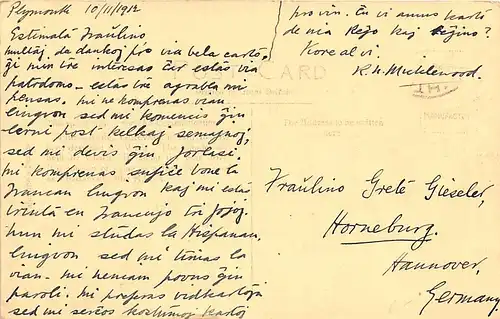 Plymouth 10/11/1912
Estimata Fraŭlino
multaj da dankoj pro via bela karto,
ĝi min tre interesas ĉar estas via
patrdomo - estas tre agrabla mi
pensas. mi ne komprenas vian
lingvon sed mi komencis ĝin
lerni post kelkaj semajnoj,
sed mi devis ĝin forlasi.
mi komprenas sufiĉe bone la
Francan lingvon kaj mi estas
irinta en Francujo tri fojoj.
nun mi studas la Hispanan
lingvon sed mi timas la
vian - mi neniam povus ĝin
paroli. mi preferas vidkartojn
sed mi serĉos kostumoj kartoj
pro vin. Ĉu vi amus kartó
de nia Reĝo kaj Reĝino?
Kore al vi.
R. H.
POST CARD
Fraŭlino Grete Gieseler,
Horneburg.
Hannover,
Germany